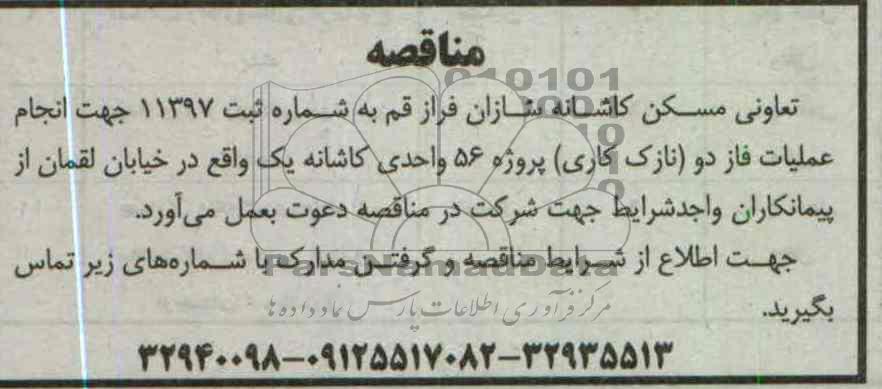 مناقصه
تعاونی مسکن کاشانه سازان فراز قم به شماره ثبت ۱۱۳۹۷ جهت انجام
عملیات فاز دو (نازک کاری) پروژه ۵۶ واحدی کاشانه یک واقع در خیابان لقمان از
پیمانکاران واجدشرایط جهت شرکت در مناقصه دعوت بعمل می‌آورد.
جهت اطلاع از شرایط مناقصه و گرفتن مدارک با شماره‌های زیر تماس
ParsNamadData
بگیرید.
مرکز فرآوری اطلاعات پارس نماد داده ها
۳۲۹۴۰۰۹۸-۰۹۱۲۵۵۱۷۰۸۲-۳۲۹۳۵۵۱۳